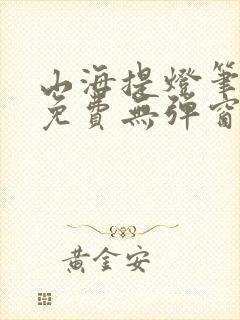 山海提燈筆
免費無彈窗
黃金安